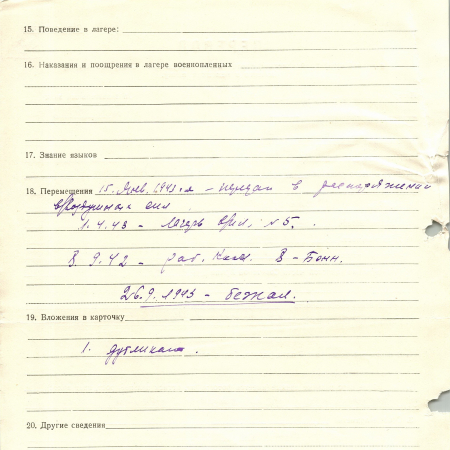 15. Поведение в лагере:
16. Наказания и поощрения в лагере военнопленных
17. Знание языков
18. Перемещения 15. Янв. 1943 г. - передан в распоряжение
воздушных сил
1.4.43 - лагерь офиц. №5.
8.9.42 - раб. Ком. В - Бонн.
26.9.1943 - бежал.
19. Вложения в карточку
1. дубликат.
20. Другие сведения